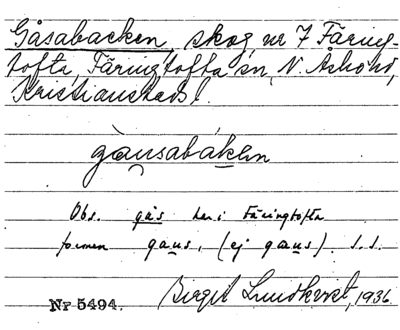 Gåsabacken, skog, nr 7 Färing-
tofta, Färingtofta sn, N. Åsbo hd,
Kristianstads l.
gàusabákən
Obs. gås har i Färingtofta
formen gaus, (ej gaus). s.s.
Nr 5494. Birgit Lundkvist, 1936